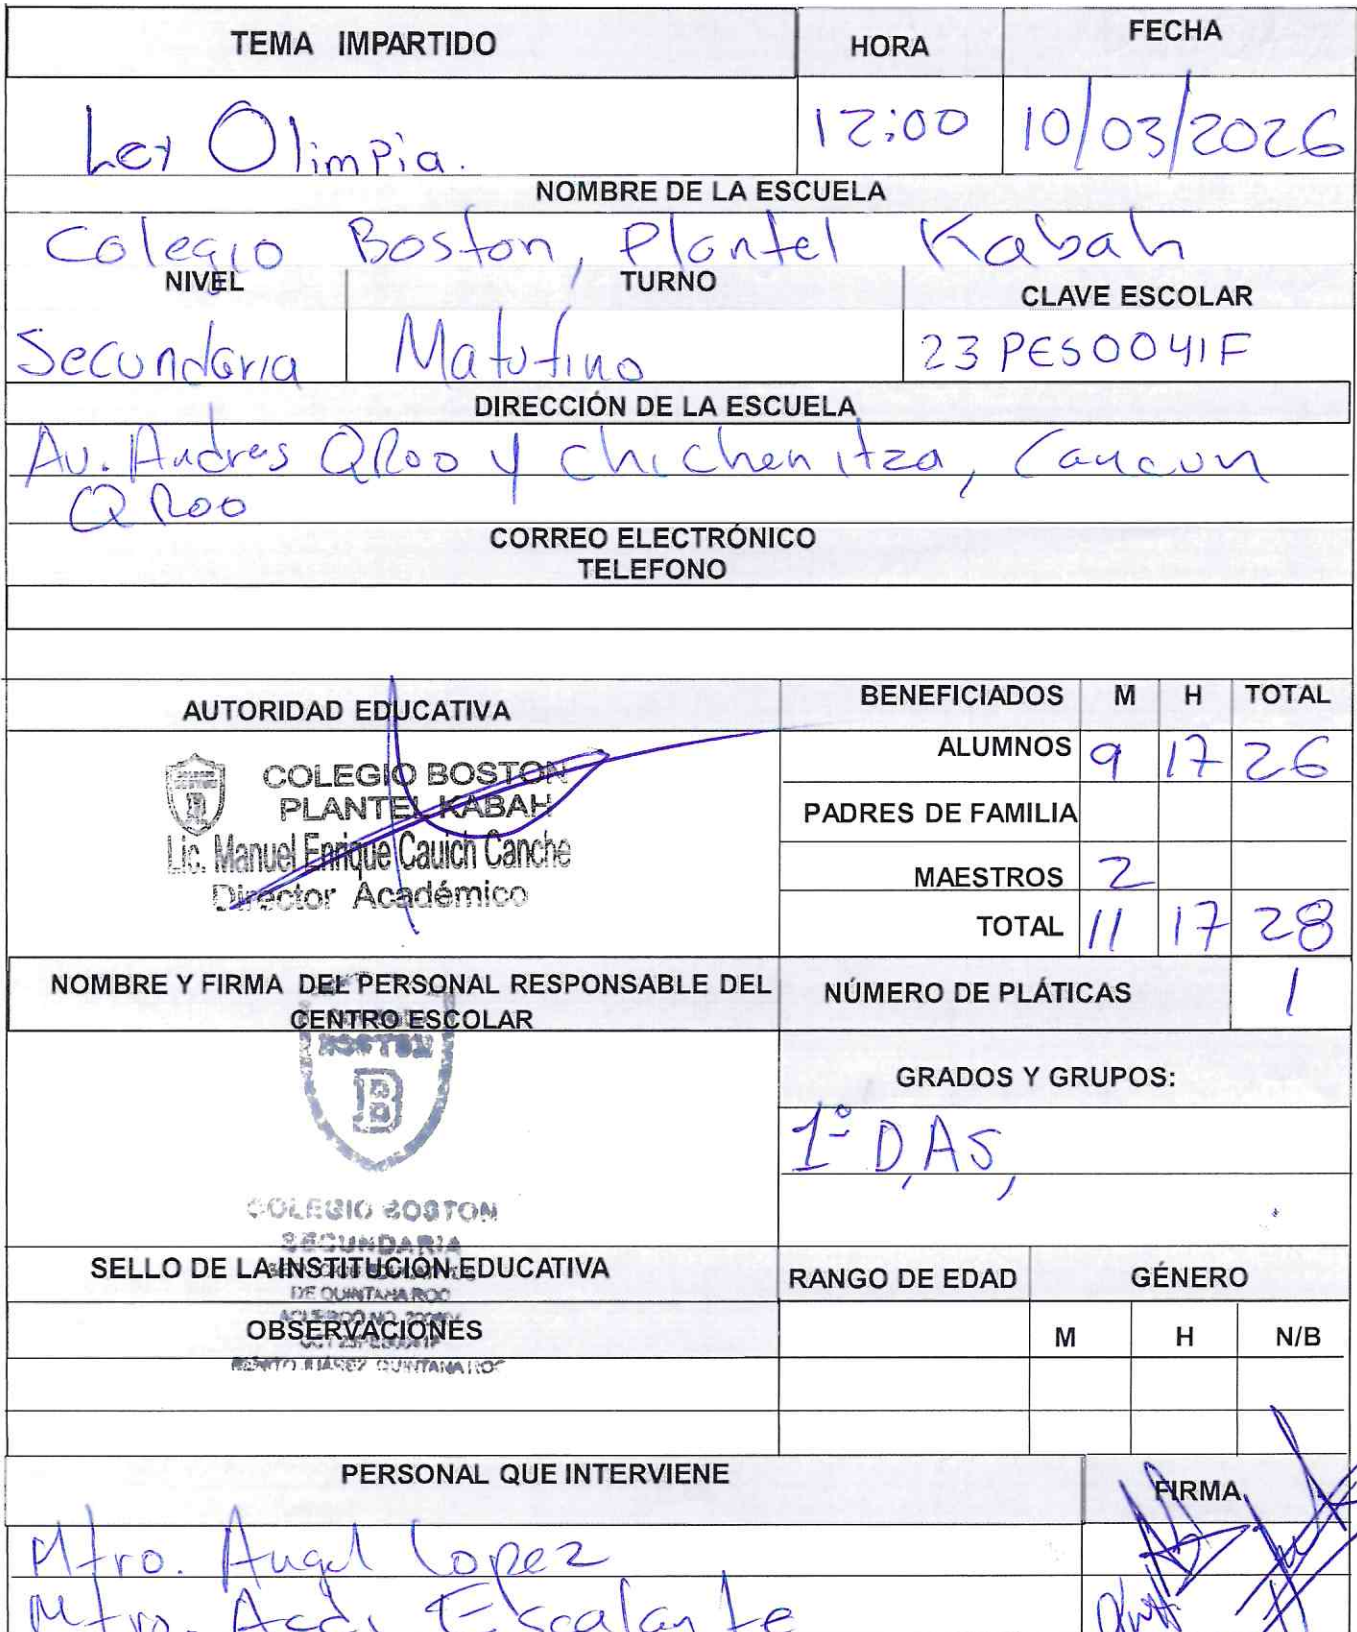 TEMA IMPARTIDO HORA FECHA
Ley Olimpia. 12:00 10/03/2026
NOMBRE DE LA ESCUELA
Colegio Boston, Plantel Kabah
NIVEL TURNO CLAVE ESCOLAR
Secundaria Matutino 23PES0041F
DIRECCIÓN DE LA ESCUELA
Av. Andres QRoo y Chichenitza, Cancun
QRoo
CORREO ELECTRÓNICO
TELEFONO
AUTORIDAD EDUCATIVA BENEFICIADOS M H TOTAL
COLEGIO BOSTON
PLANTEL KABAH
Lic. Manuel Enrique Cauich Canche
Director Académico
ALUMNOS 9 17 26
PADRES DE FAMILIA
MAESTROS 2
TOTAL 11 17 28
NOMBRE Y FIRMA DEL PERSONAL RESPONSABLE DEL
CENTRO ESCOLAR
NÚMERO DE PLÁTICAS 1
BOSTON
B
GRADOS Y GRUPOS:
1º D, AS,
COLEGIO BOSTON
SECUNDARIA
SELLO DE LA INSTITUCIÓN EDUCATIVA RANGO DE EDAD GÉNERO
DE QUINTANA ROO
OBSERVACIONES M H N/B
BENITO JUÁREZ QUINTANA ROO
PERSONAL QUE INTERVIENE FIRMA
Mtro. Angel Lopez
Mtro. Escalante